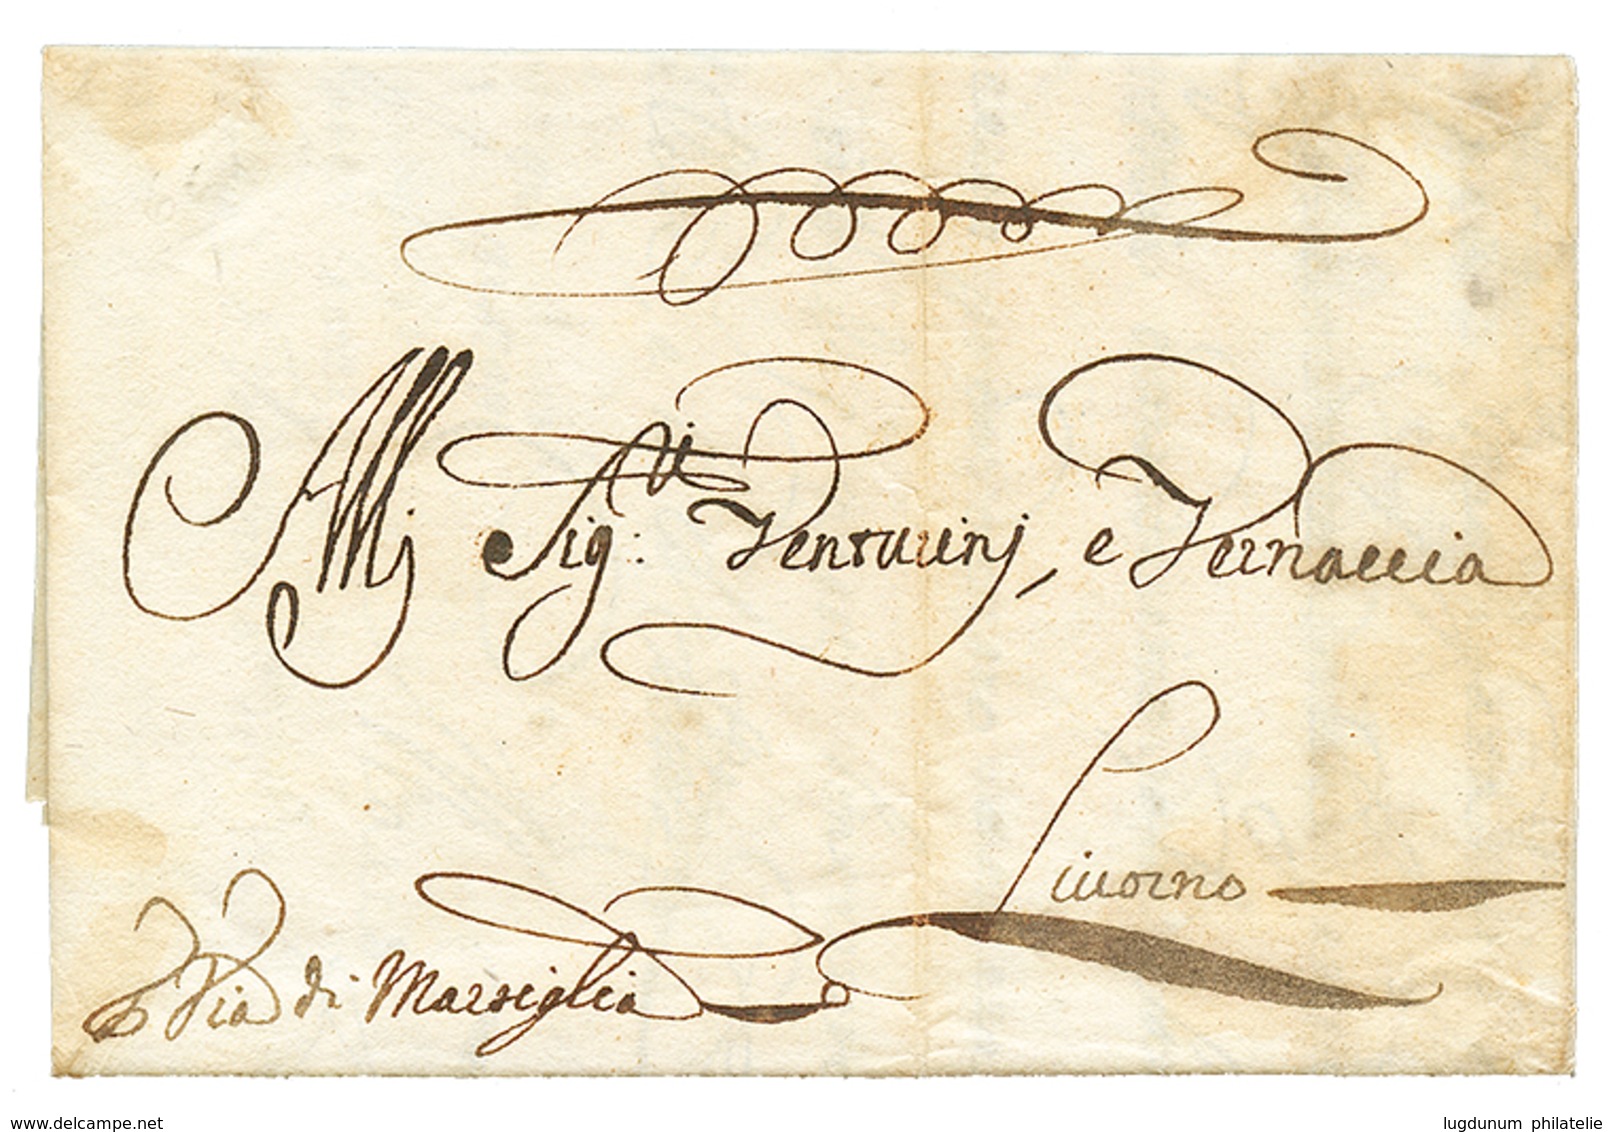 Alli Sig.ri Venturinj, e Vernaccia
Livorno
Via di Marsiglia
www.delcampe.net
lugdunum philatelie